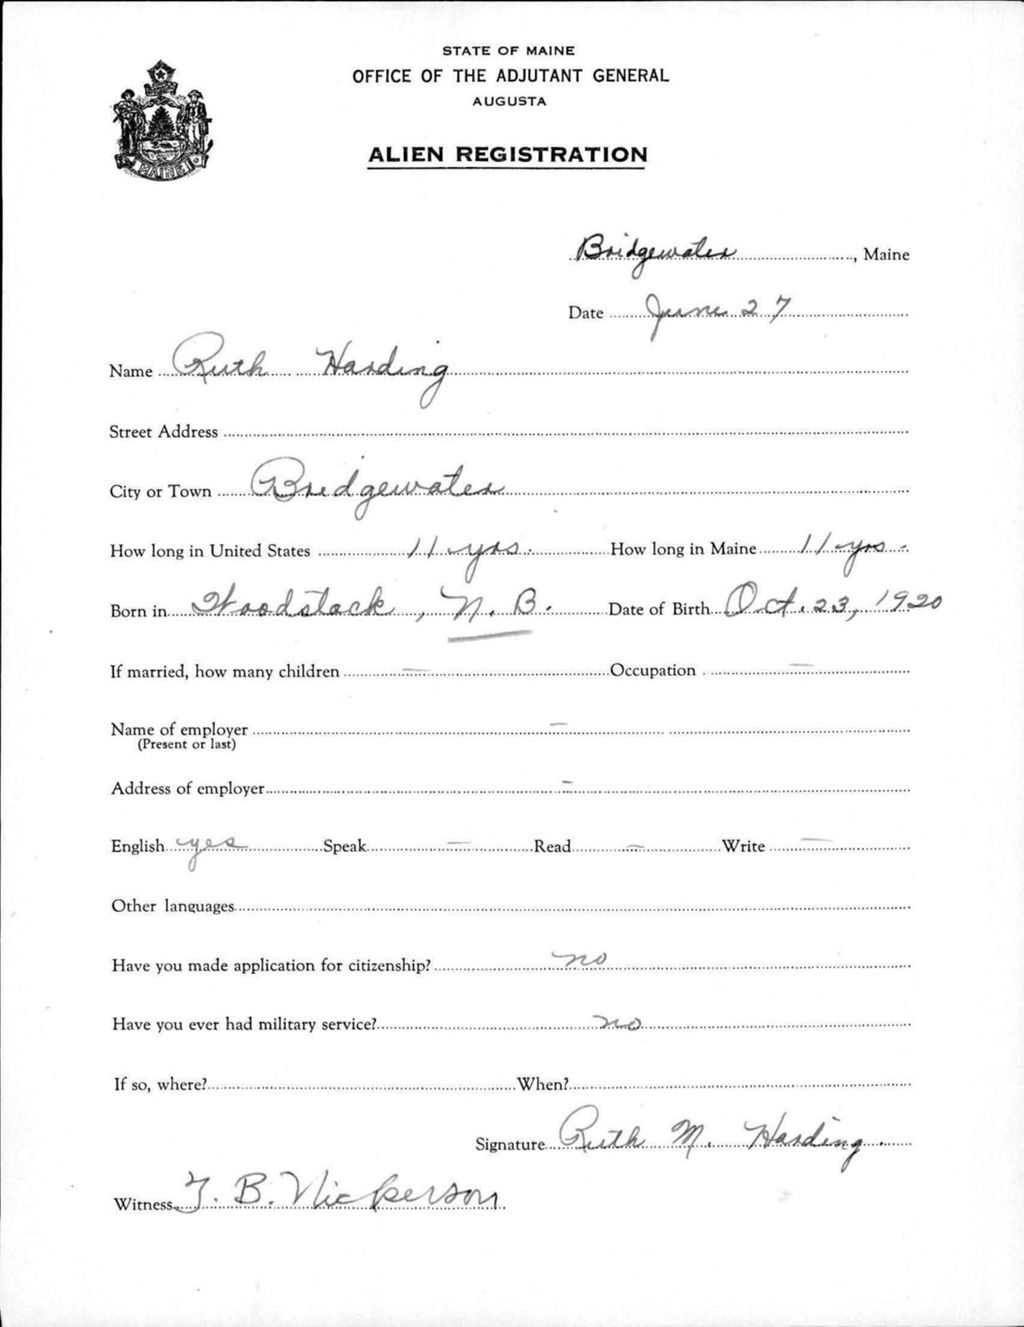 STATE OF MAINE
OFFICE OF THE ADJUTANT GENERAL
AUGUSTA
ALIEN REGISTRATION
MAINE
Bridgewater, Maine
Date June 27
Name Ruth Harding
Street Address
City or Town Bridgewater
How long in United States 11 yrs. How long in Maine 11 yrs.
Born in Woodstock, N. B. Date of Birth Oct. 23, 1920
If married, how many children — Occupation —
Name of employer —
(Present or last)
Address of employer —
English yes Speak — Read — Write —
Other languages
Have you made application for citizenship? no
Have you ever had military service? no
If so, where? When?
Signature Ruth M. Harding.
Witness T. B. Nickerson